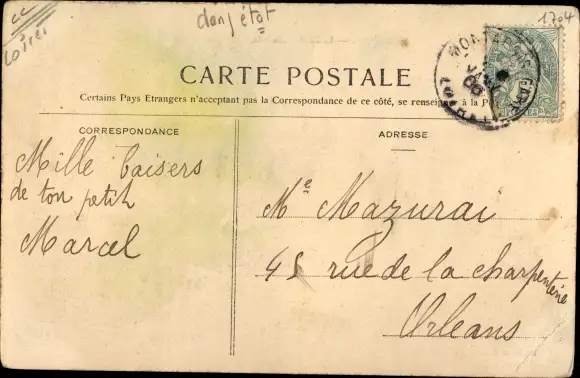 cc
Loiret
dans état
1704
CARTE POSTALE
Certains Pays Etrangers n'acceptant pas la Correspondance de ce côté, se renseigner à la Po
CORRESPONDANCE
ADRESSE
Mille baisers
de ton petit
Marcel
Me Mazurai
45 rue de la charpenterie
Orleans